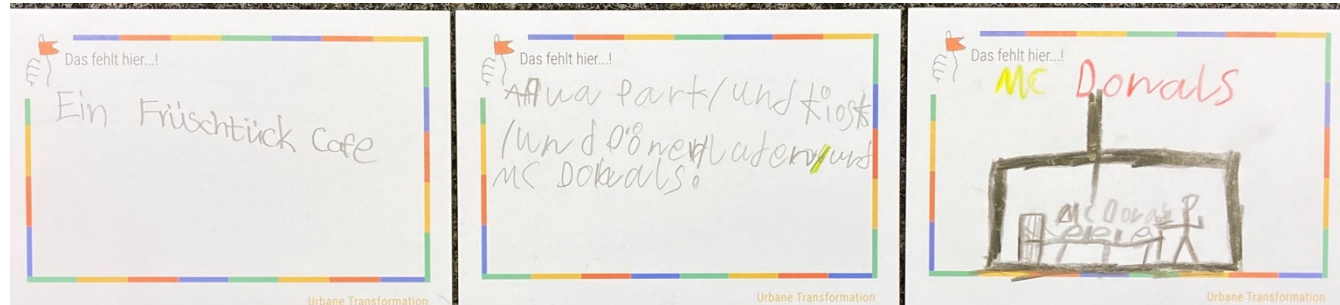 Das fehlt hier...!
Ein Früschtück Cafe
Urbane Transformation
Das fehlt hier...!
Aqua Park/und kiosk
/und Dönerladen/und
MC Donals.
Urbane Transformation
Das fehlt hier...!
MC Donals
McDonals
Urbane Transformation